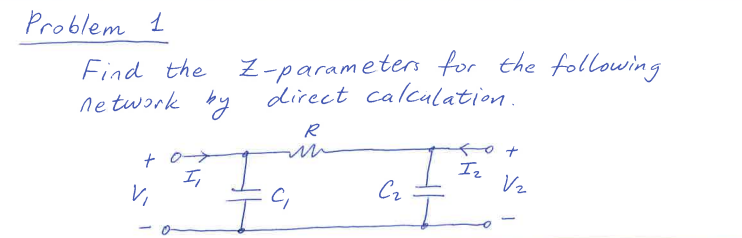 Problem 1
Find the Z-parameters for the following
network by direct calculation.
R
+ I₁ I₂ +
V₁ C₁ C₂ V₂
- -